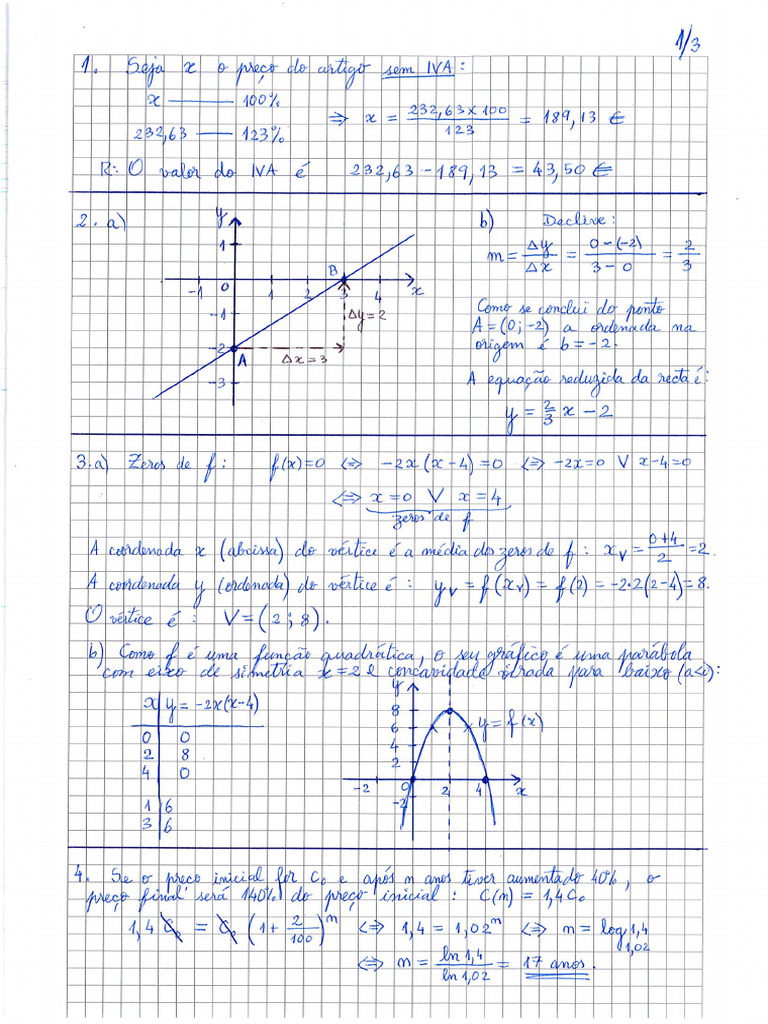 1/3
1. Seja x o preço do artigo sem IVA:
x —— 100%
232,63 —— 123%
⇒ x = (232,63 × 100)/123 = 189,13 €
R: O valor do IVA é 232,63 – 189,13 = 43,50 €
2. a)
y
1
B
-1 0 1 2 3 4 x
-1
Δy = 2
-2
A
Δx = 3
-3
b) Declive:
m = Δy/Δx = (0-(-2))/(3-0) = 2/3
Como se conclui do ponto
A = (0; -2) a ordenada na
origem é b = -2.
A equação reduzida da recta é:
y = 2/3 x - 2
3. a) Zeros de f: f(x)=0 ⇔ -2x(x-4)=0 ⇔ -2x=0 V x-4=0
⇔ x=0 V x=4
zeros de f
A coordenada x (abcissa) do vértice é a média dos zeros de f: x_V = (0+4)/2 = 2.
A coordenada y (ordenada) do vértice é: y_V = f(x_V) = f(2) = -2·2(2-4) = 8.
O vértice é: V = (2; 8).
b) Como f é uma função quadrática, o seu gráfico é uma parábola
com eixo de simetria x=2 e concavidade virada para baixo (a<0):
x y = -2x(x-4)
0 0
2 8
4 0
1 6
3 6
y
8
y = f(x)
6
4
2
-2 0 2 4 x
-2
4. Se o preço inicial for C₀ e após n anos tiver aumentado 40%, o
preço final será 140% do preço inicial: C(n) = 1,4C₀
1,4 C₀ = C₀ (1 + 2/100)^n ⇔ 1,4 = 1,02^n ⇔ n = log_1,02 1,4
⇔ n = ln 1,4 / ln 1,02 = 17 anos.